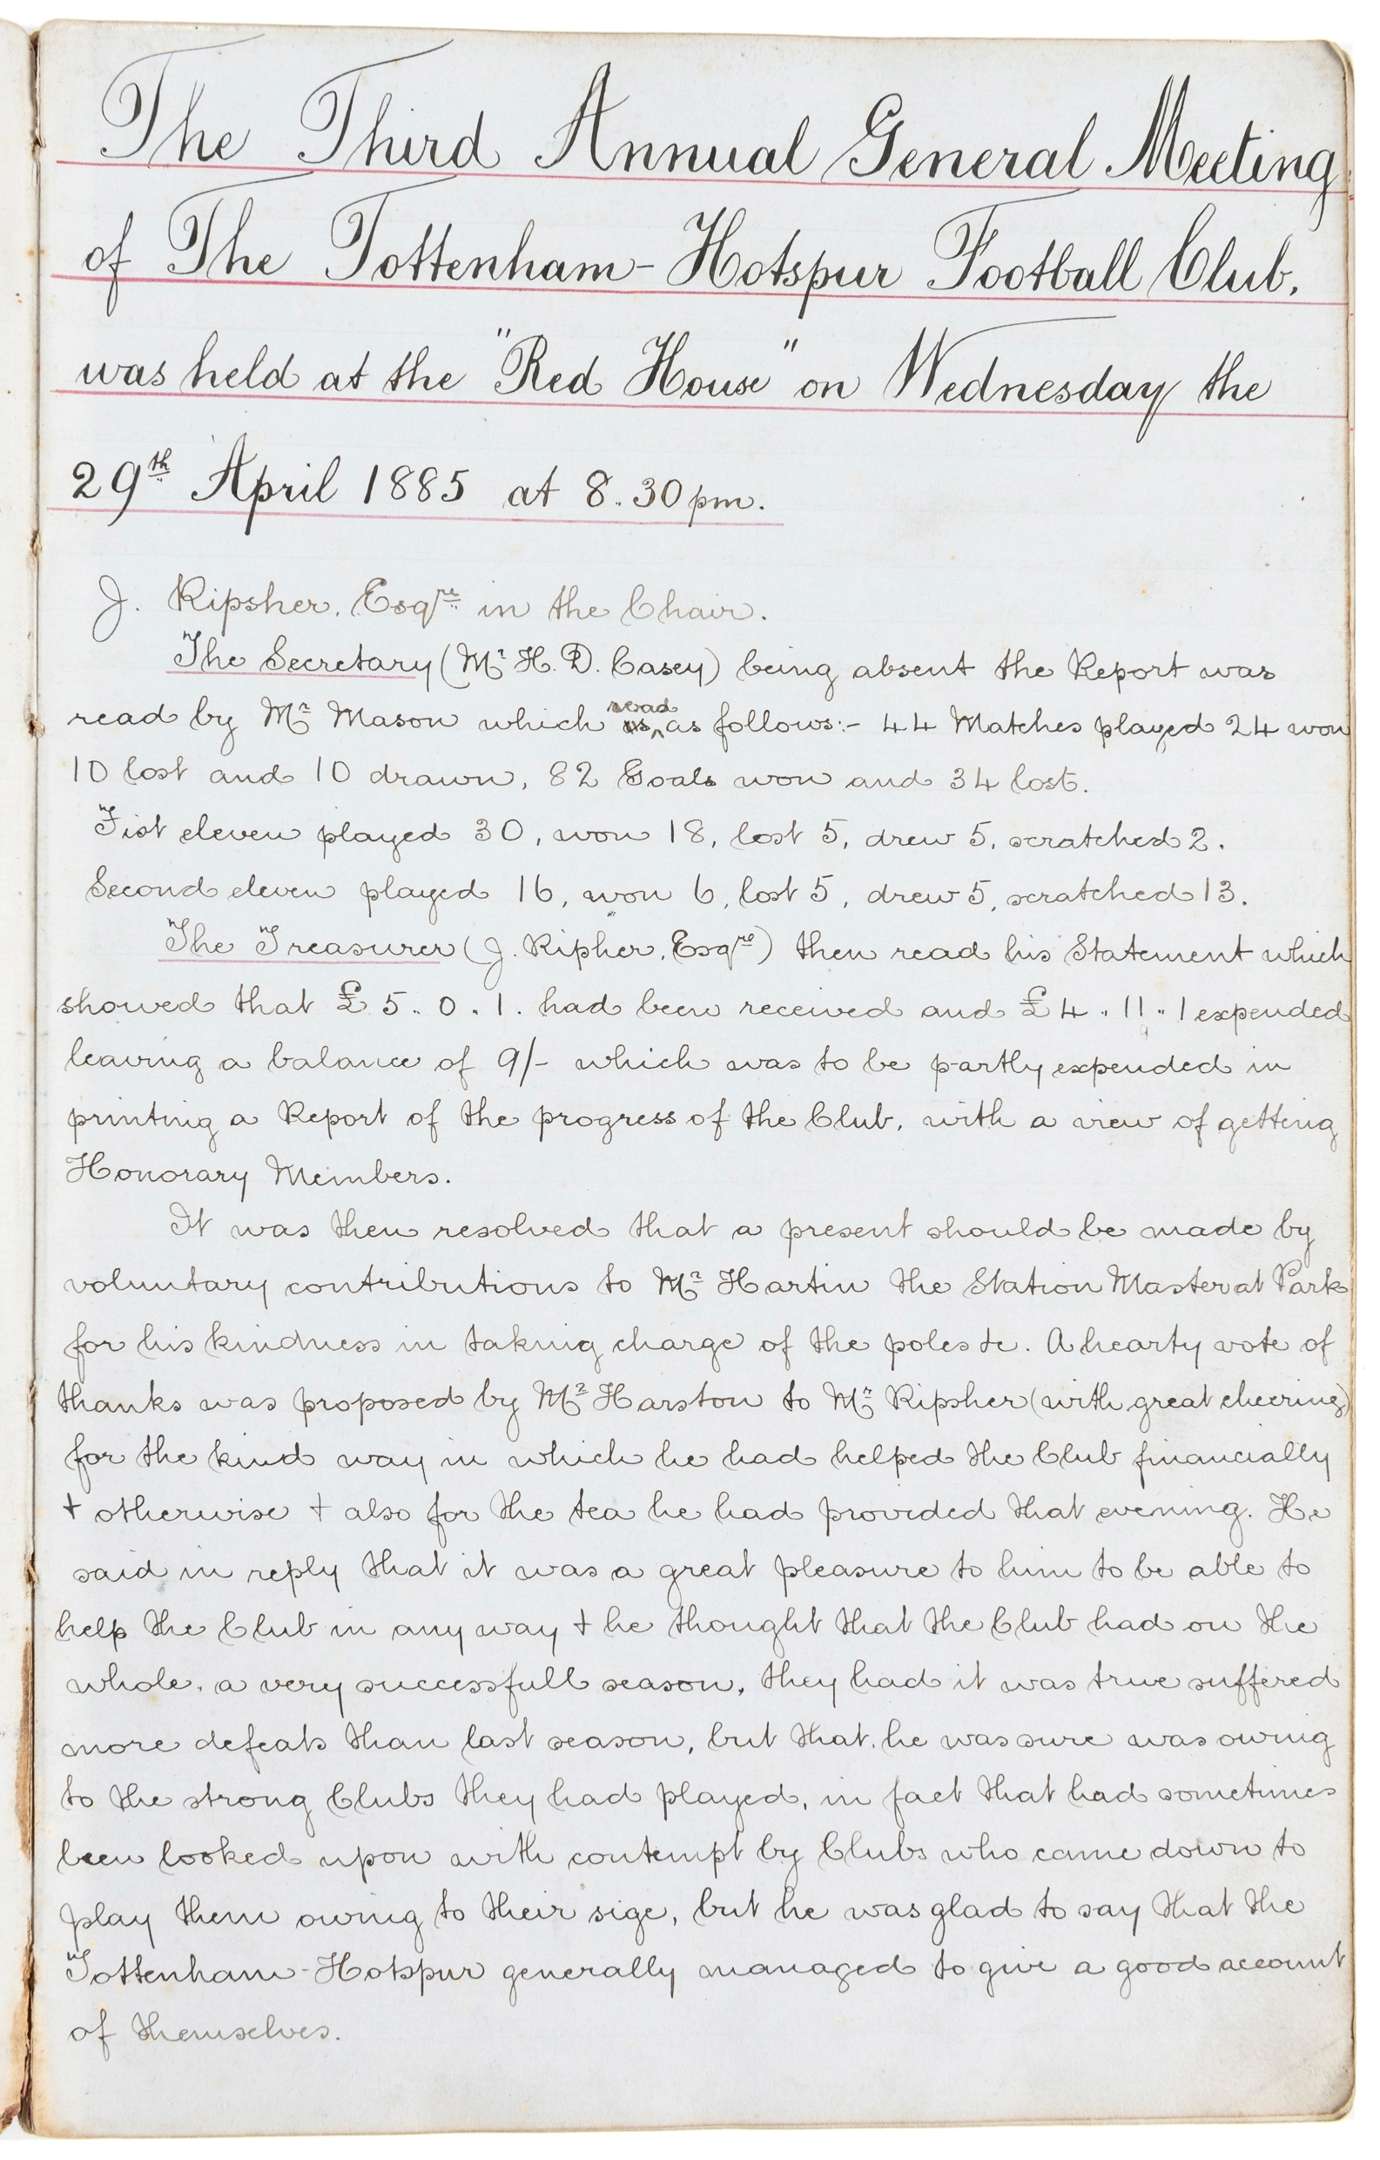 The Third Annual General Meeting
of The Tottenham-Hotspur Football Club,
was held at the "Red House" on Wednesday the
29th April 1885 at 8.30 pm.
J. Ripsher, Esqre in the Chair.
The Secretary (Mr H. D. Casey) being absent the Report was
read by Mr Mason which read as follows:- 44 Matches played 24 won
10 lost and 10 drawn, 82 Goals won and 34 lost.
Fist eleven played 30, won 18, lost 5, drew 5, scratched 2.
Second eleven played 16, won 6, lost 5, drew 5, scratched 13.
The Treasurer (J. Ripher, Esqre) then read his Statement which
showed that £5.. 0.. 1. had been received and £4.. 11.. 1 expended
leaving a balance of 9/- which was to be partly expended in
printing a Report of the progress of the Club, with a view of getting
Honorary Members.
It was then resolved that a present should be made by
voluntary contributions to Mr Hartin the Station Master at Park
for his kindness in taking charge of the poles &c. A hearty vote of
thanks was proposed by Mr Harston to Mr Ripsher (with great cheering)
for the kind way in which he had helped the Club financially
+ otherwise + also for the tea he had provided that evening. He
said in reply that it was a great pleasure to him to be able to
help the Club in any way + he thought that the Club had on the
whole, a very successfull season, they had it was true suffered
more defeats than last season, but that, he was sure was owing
to the strong Clubs they had played, in fact that had sometimes
been looked upon with contempt by Clubs who came down to
play them owing to their size, but he was glad to say that the
Tottenham-Hotspur generally managed to give a good account
of themselves.